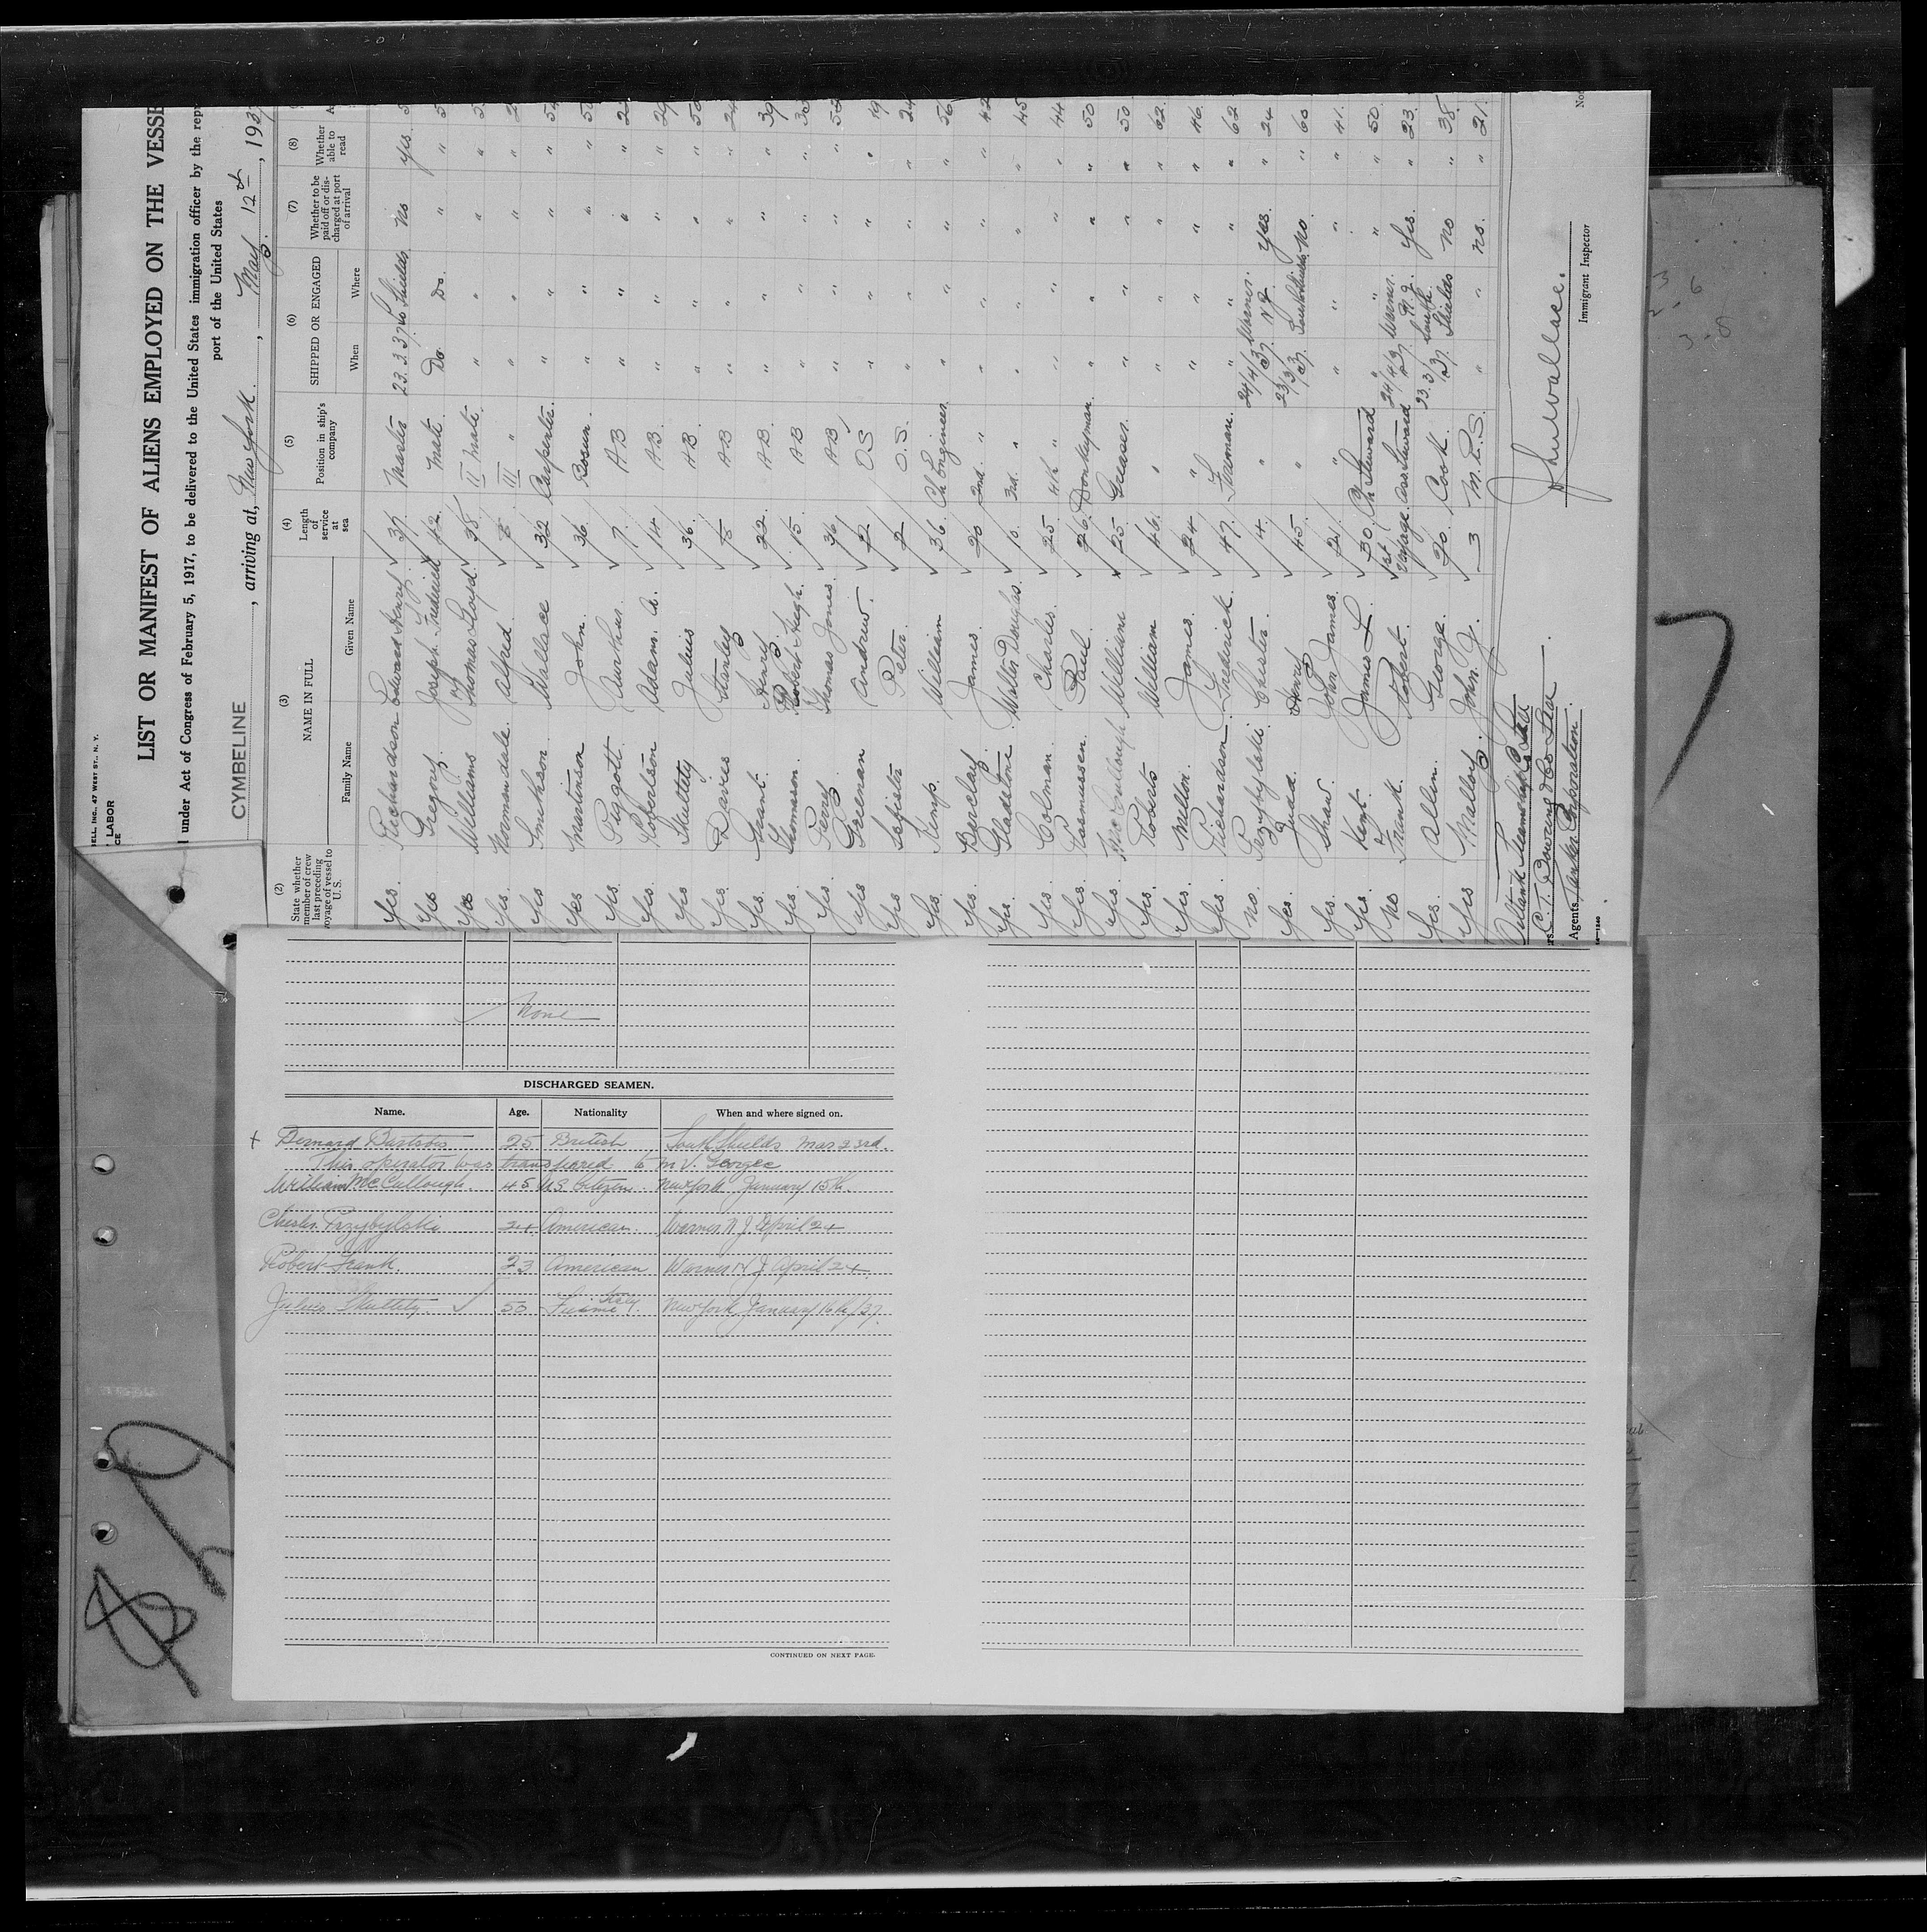 ELL, INC., 47 WEST ST., N. Y.
LABOR
CE
LIST OR MANIFEST OF ALIENS EMPLOYED ON THE VESSE
under Act of Congress of February 5, 1917, to be delivered to the United States immigration officer by the rep
port of the United States
CYMBELINE, arriving at, New York, May 12th, 1937
(2) State whether member of crew last preceding voyage of vessel to U.S. (3) NAME IN FULL Family Name Given Name (4) Length of service at sea (5) Position in ship's company (6) SHIPPED OR ENGAGED When Where (7) Whether to be paid off or discharged at port of arrival (8) Whether able to read
Yes. Richardson Edward Henry 37. Master 23.3.37 So Shields no yes
Yes Gregory. Joseph Frederick 42 Mate. Do. Do. " "
Yes Williams Thomas Lloyd. 38 II Mate " " " "
Yes. Normandale. Alfred. 8 III " " " " "
Yes Smithson. Wallace 32 Carpenter. " " " " 54
Yes Martinson John. 36. Bosun. " " " "
Yes. Piggott. Aurthur. 7. AB " " " "
Yes. Robertson Adam. A. 14. AB. " " " " 29
Yes Skultety Julius 36. AB. " " " " 50
Yes. Davies Stanley 5 AB " " " " 24
Yes. Grant. Henry 22. AB. " " " " 39
Yes. Thomason. Robert Hugh. 15. AB " " " " 30
Yes. Perry. Thomas Jones. 36 AB " " " " 52
Yes Greenan Andrew. 2 OS " " " " 19
Yes Peter. 2 O.S. " " " " 24
Yes. Kemp. William 36 Ch Engineer. " " " " 56
Yes. Berclay. James. 20 2nd. " " " " " 42
Yes. Gladstone. Walter Douglas. 10. 3rd. " " " " " 45
Yes. Colman. Charles. 25. 4th " " " " " 44
Yes. Rasmussen. Paul. 26. Donkeyman. " " " " 50
Yes. McCullough William 25 Greaser. " " " " 50
Yes. Roberts William 46. " " " " " 62
Yes. Melton. James. 24 " " " " " 46.
Yes. Richardson. Frederick. 47. Fireman. " " " " 62
no. Przybylski. Chester. 4. " 24/4/37. Warner. N.J. Yes. " 24
Yes. Judd. Henry 45. " 23/3/37. South Shields. no. " 63
Yes. Shaw. John James. 21. " " " " " 41.
Yes. Kent. James L. 30. Ch Steward " " " " 50
no Frank. Robert. 1st voyage. Ass. Steward 24/4/37. Warner. N.J. Yes. " 23.
Yes. Allin. George. 20. Cook. 23.3/37. South Shields no " 38.
Yes Malloy. John J. 3 M.R.S. " " no. " 21.
C. T. Bowring & Co Ltd
Agents Tanker Corporation.
Immigrant Inspector
None
DISCHARGED SEAMEN.
Name. Age. Nationality When and where signed on.
+ Bernard 25 British South Shields Mar 23rd.
This operator was transferred to M.V. Georgee
William McCullough. 45 US Citizen. New York January 15th.
Chester Przybylski 24 American. Warner N J. April 24
Robert Frank. 23 American Warner N J April 24.
Julius Skultety. 50 Fiume Italy. New York January 16th/37.
CONTINUED ON NEXT PAGE.